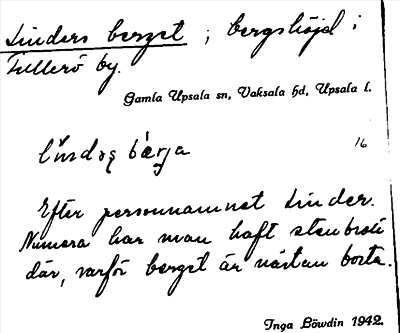 Linders berget ; bergshöjd i
Fullerö by.
Gamla Upsala sn, Vaksala hd, Upsala l.
16
Efter personnamnet Linder.
Numera har man haft stenbrott
där, varför berget är nästan borta.
Inga Löwdin 1942.